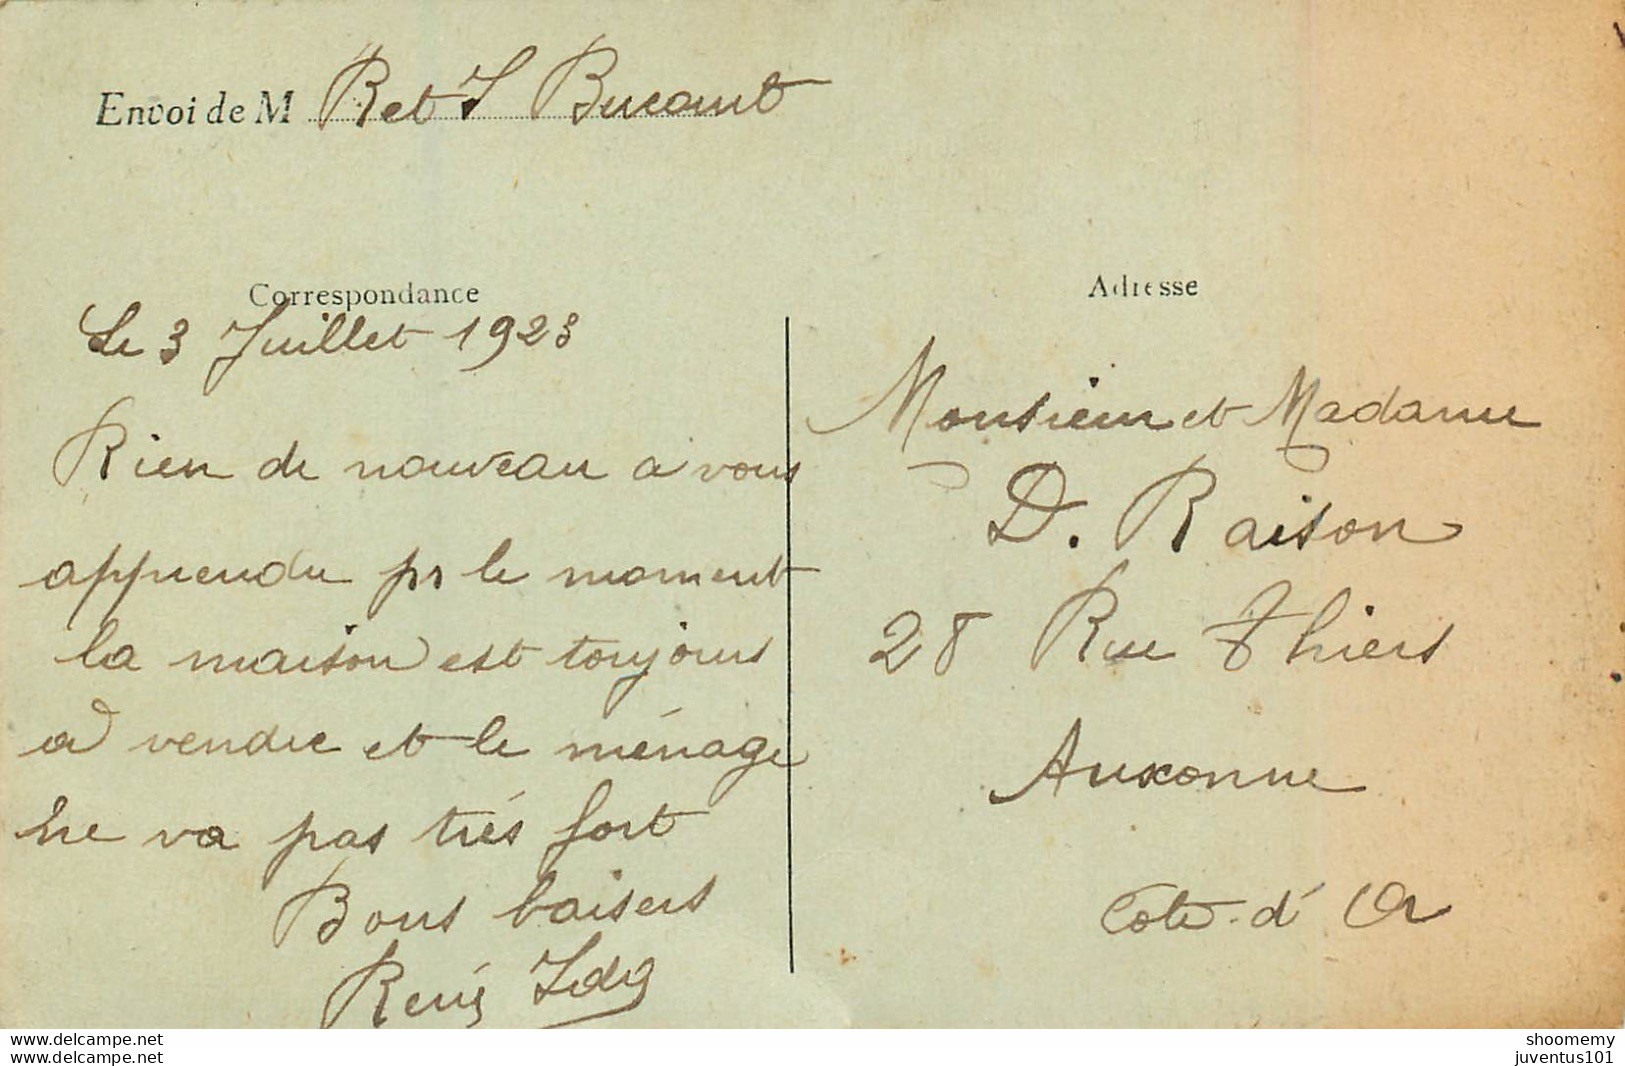 Envoi de M R et I Bucaut
Correspondance
Le 3 Juillet 1923
Rien de nouveau a vous
apprendre pr le moment
la maison est toujours
a vendre et le ménage
ne va pas trés fort
Bons baisers
René Ida
Adresse
Monsieur et Madame
D. Raison
28 Rue Thiers
Auxonne
Cote d' Or
www.delcampe.net
www.delcampe.net
shoomemy
juventus101